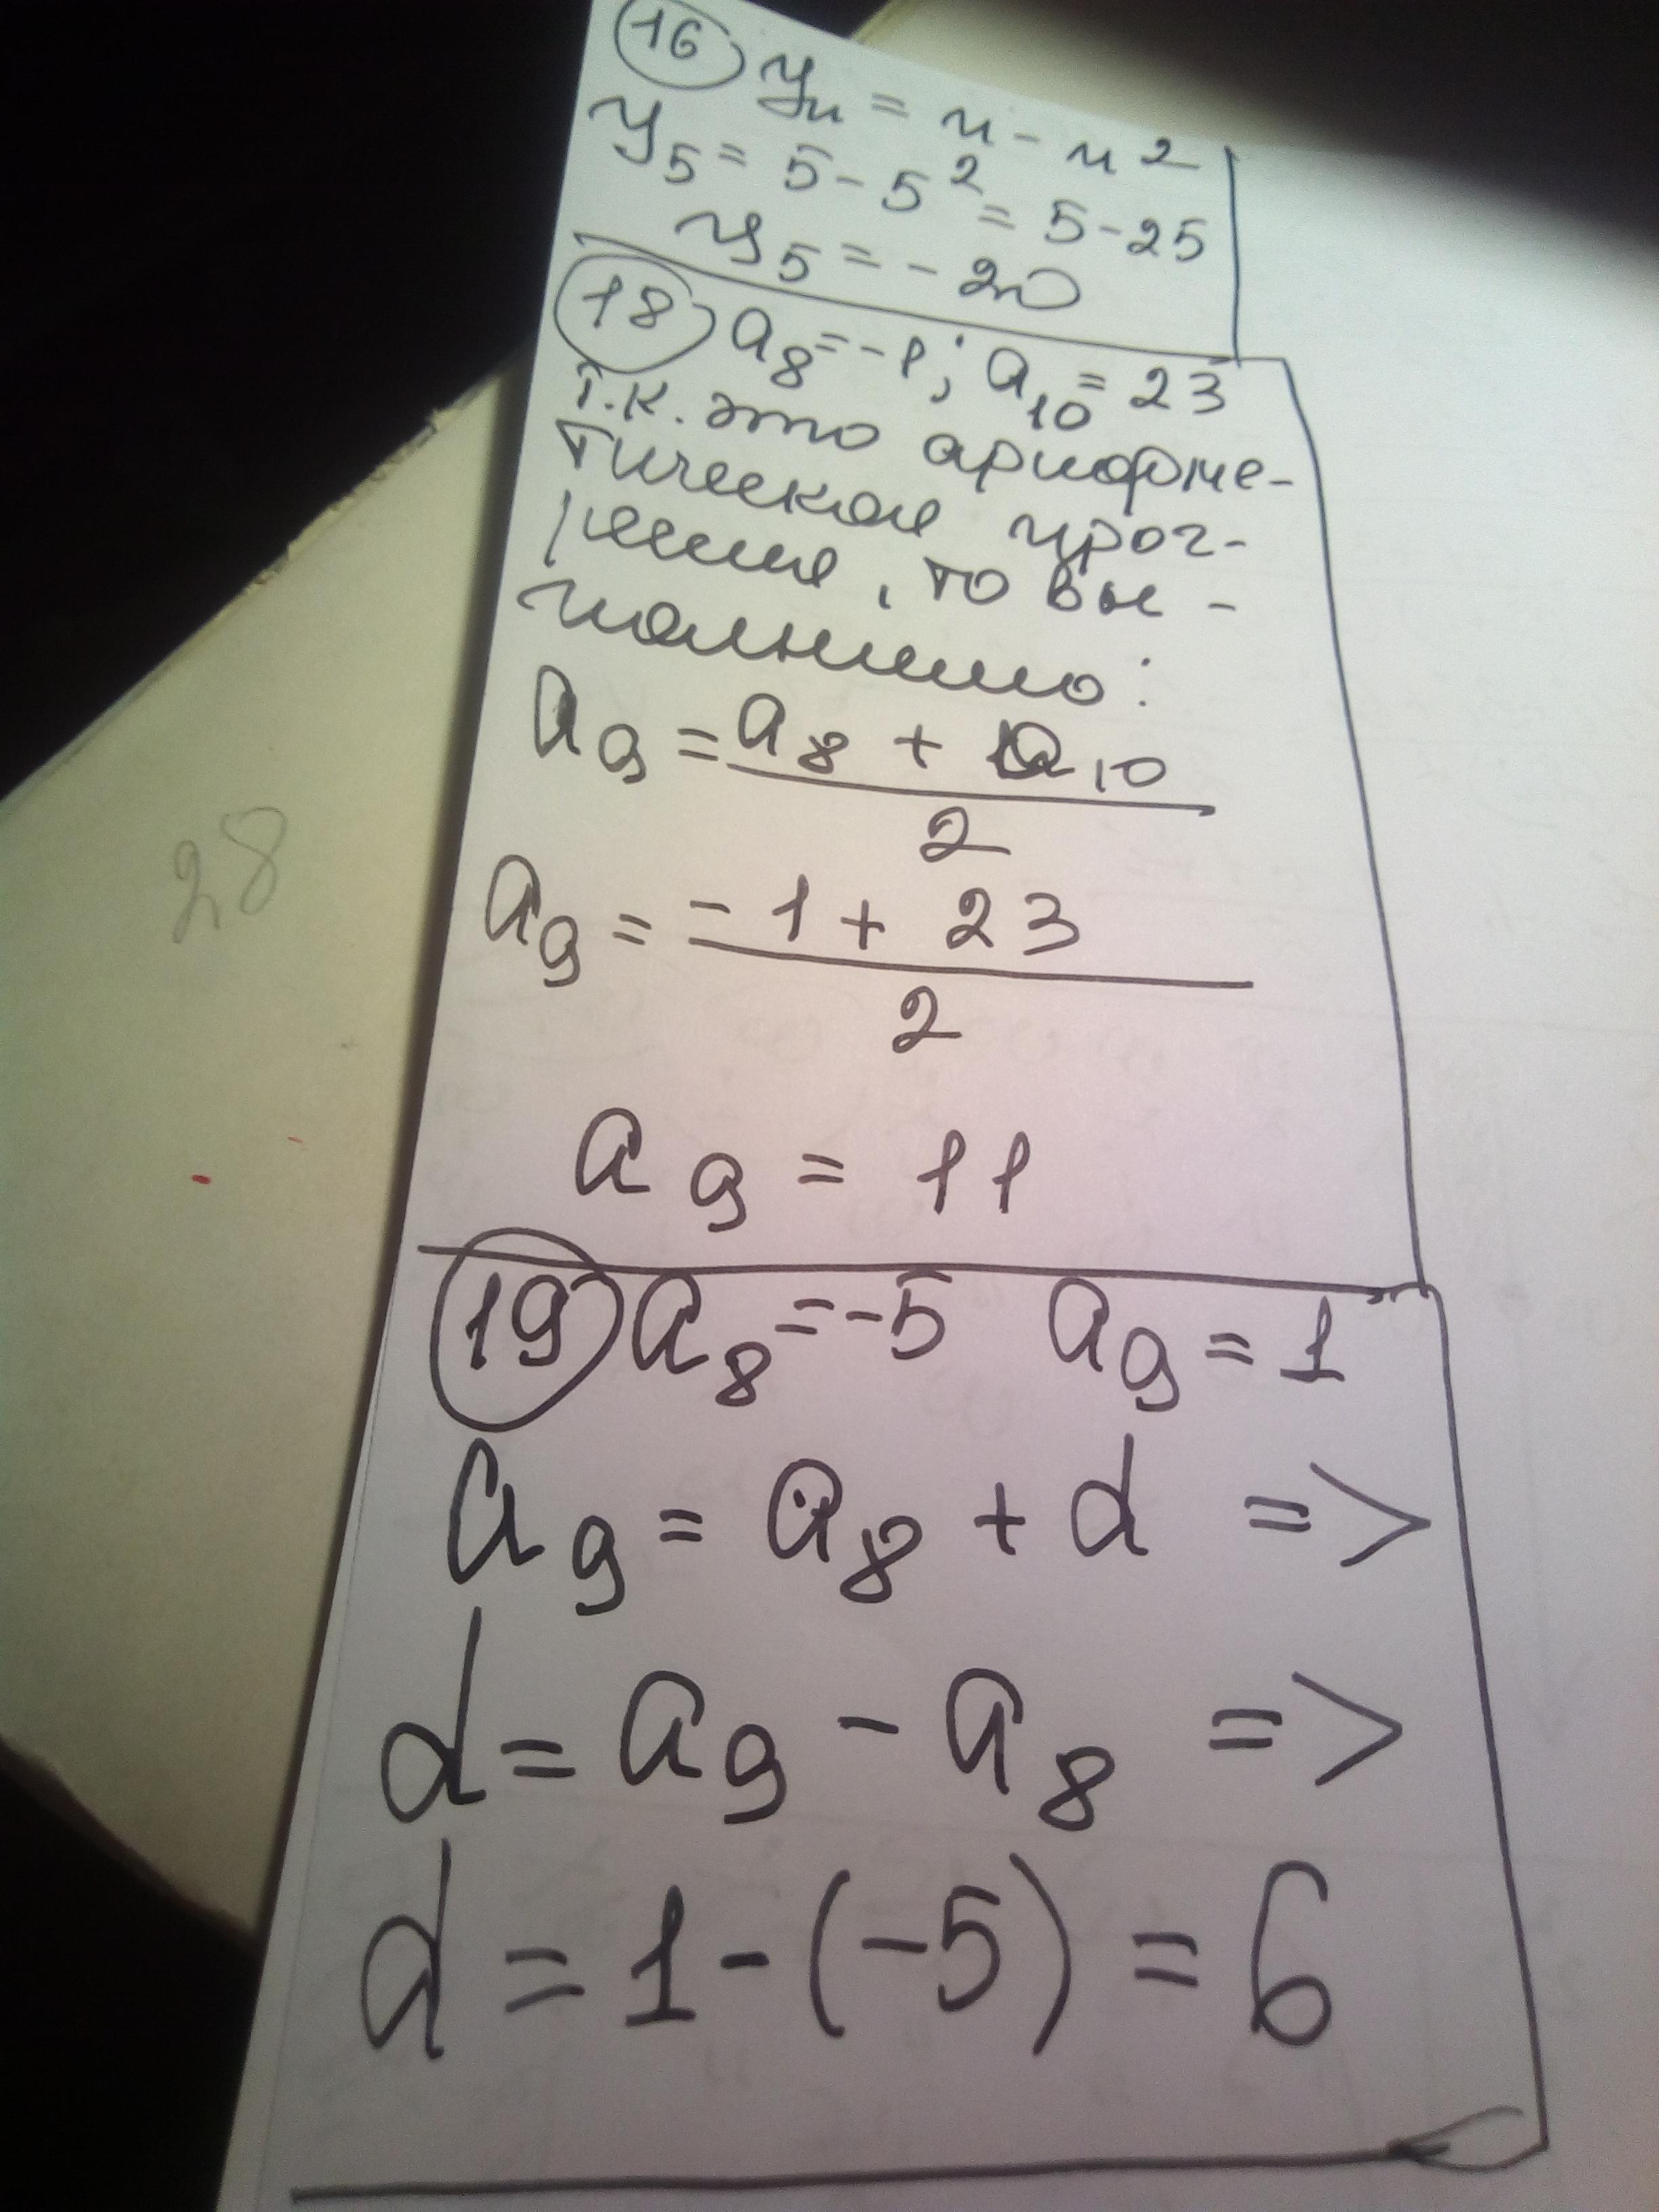 16 yn = n - n²
y5 = 5 - 5² = 5 - 25
y5 = - 20
18 a8 = -1; a10 = 23
т.к. это арифме-
тическая прог-
рессия, то вы-
полнимо:
a9 = a8 + a10
2
a9 = - 1 + 23
2
a9 = 11
19 a8 = -5 a9 = 1
a9 = a8 + d =>
d = a9 - a8 =>
d = 1 - (-5) = 6
28